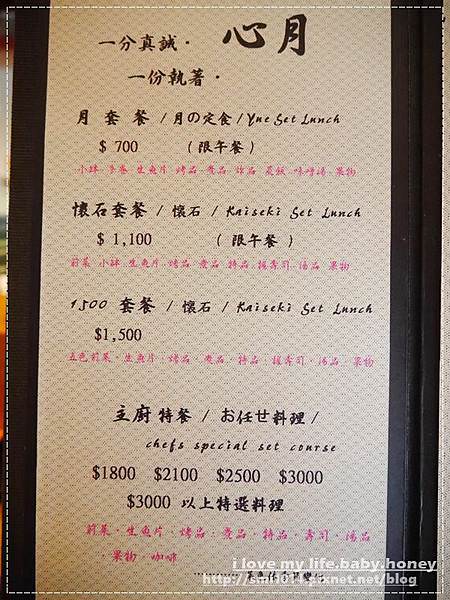 心月
一分真誠·
一份執著·
月套餐 / 月の定食 / Yue Set Lunch
$ 700 （限午餐）
小缽·手卷·生魚片·烤品·煮品·炸品·炙飯·味噌湯·果物
懷石套餐 / 懷石 / Kaiseki Set Lunch
$ 1,100 （限午餐）
前菜·小缽·生魚片·烤品·煮品·特品·握壽司·湯品·果物
1500 套餐 / 懷石 / Kaiseki Set Lunch
$1,500
五色前菜·生魚片·烤品·煮品·特品·握壽司·湯品·果物
主廚特餐 / お任せ料理 /
chefs special set course
$1800 $2100 $2500 $3000
$3000 以上特選料理
前菜·生魚片·烤品·煮品·特品·壽司·湯品
·果物·咖啡
i love my life.baby.honey
http://smil014.pixnet.net/blog